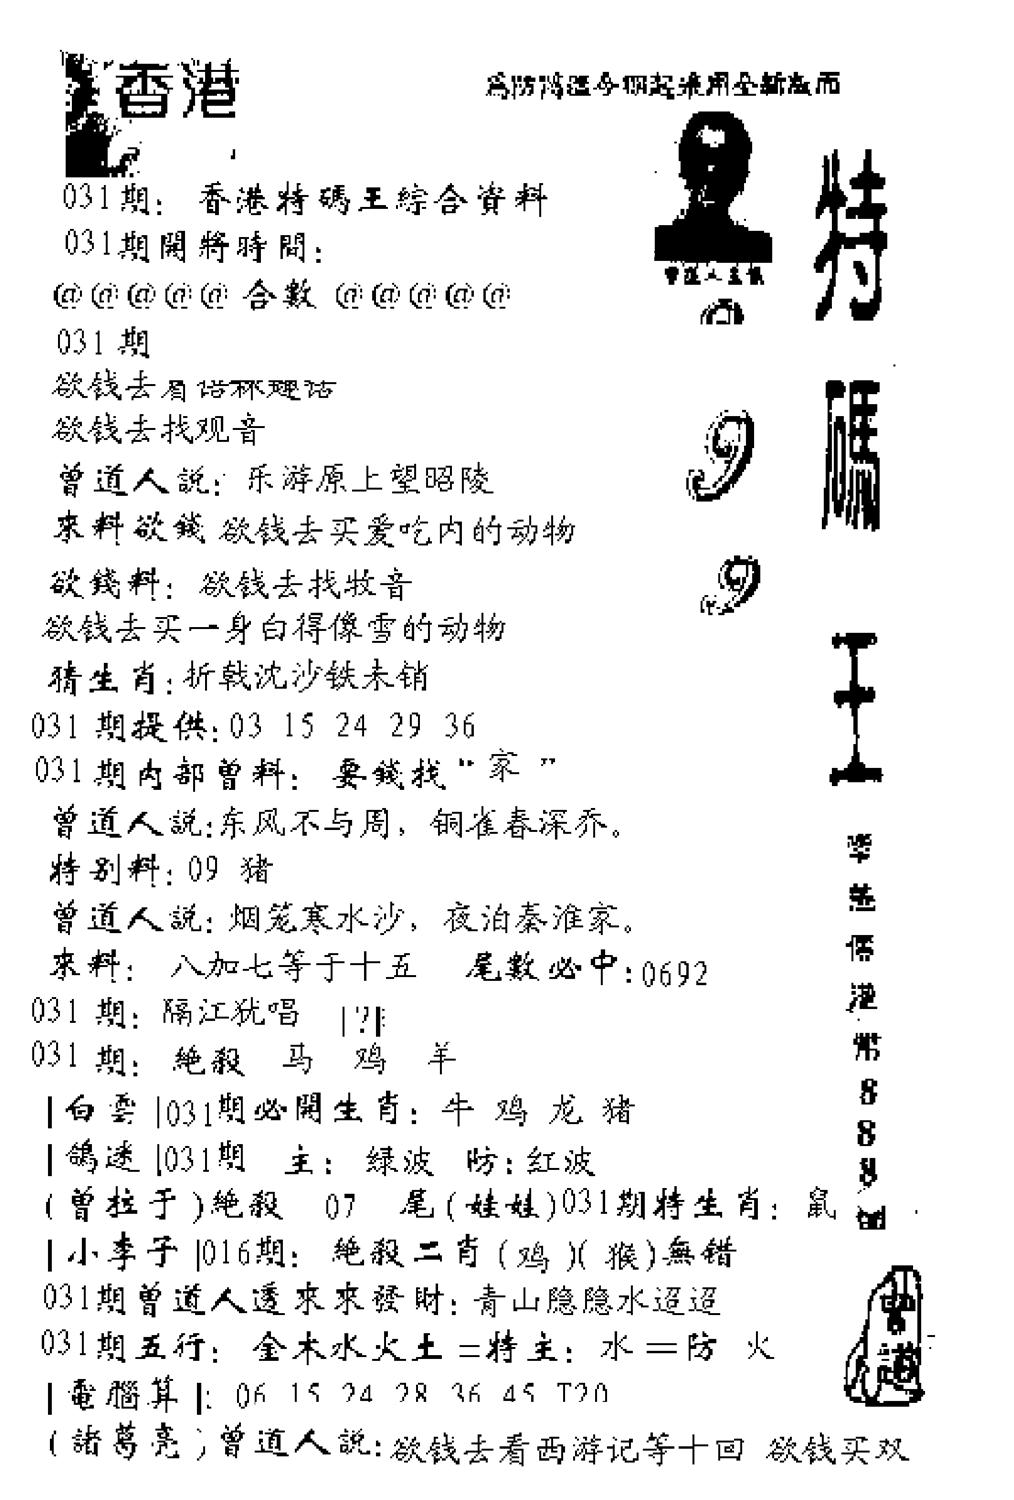 香港
031期：香港特碼王綜合資料
031期開將時間：
@@@@@合數@@@@@
031期
欲钱去
欲钱去找观音
曾道人説：乐游原上望昭陵
來料欲錢 欲钱去买爱吃内的动物
欲錢料：欲钱去找牧音
欲钱去买一身白得像雪的动物
猜生肖：折戟沈沙铁未销
031期提供：03 15 24 29 36
031期内部曾料：要錢找“家”
曾道人説：东风不与周，铜雀春深乔。
特别料：09 猪
曾道人説：烟笼寒水沙，夜泊秦淮家。
來料：八加七等于十五 尾數必中：0692
031期：隔江犹唱 |?|
031期：絶殺 马 鸡 羊
|白雲|031期必開生肖：牛 鸡 龙 猪
|鴿迷|031期 主：绿波 防：红波
(曾拉于)絶殺 07 尾(娃娃)031期特生肖：鼠
|小李子|016期：絶殺二肖(鸡)(猴)無错
031期曾道人透來來發財：青山隐隐水迢迢
031期五行：金木水火土=特主：水=防 火
|電腦算|：06 15 24 28 36 45 T20
(諸葛亮)曾道人説：欲钱去看西游记等十回 欲钱买双
特碼王
9
9
888
曾道